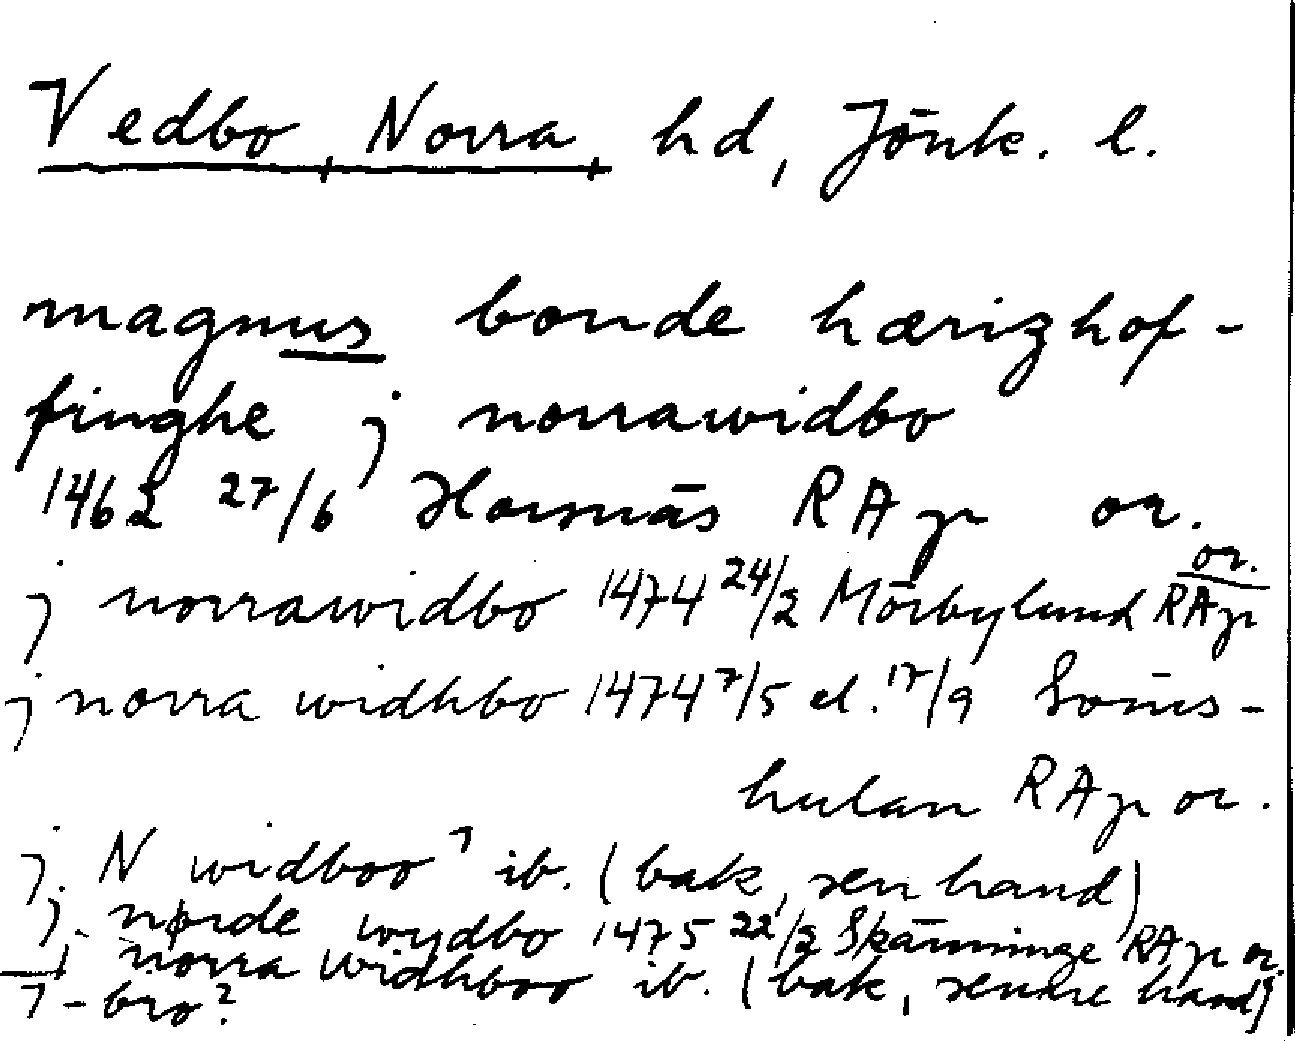 Vedbo, Norra, hd, Jönk. l.
magnus bonde hærizhof-
finghe j norrawidbo
1462 27/6 Hornäs RAp or.
or.
j norrawidbo 1474 24/2 Mörbylund RAp
j norra widhbo 1474 7/5 el. 17/9 Söms-
hulan RAp or.
j N widboo ⁊ ib. (bak, sen hand)
j nørde wydbo 1475 22/2 Skänninge RAp or.
j norra widhboo ib. (bak, senare hand)
⁊ -bro?